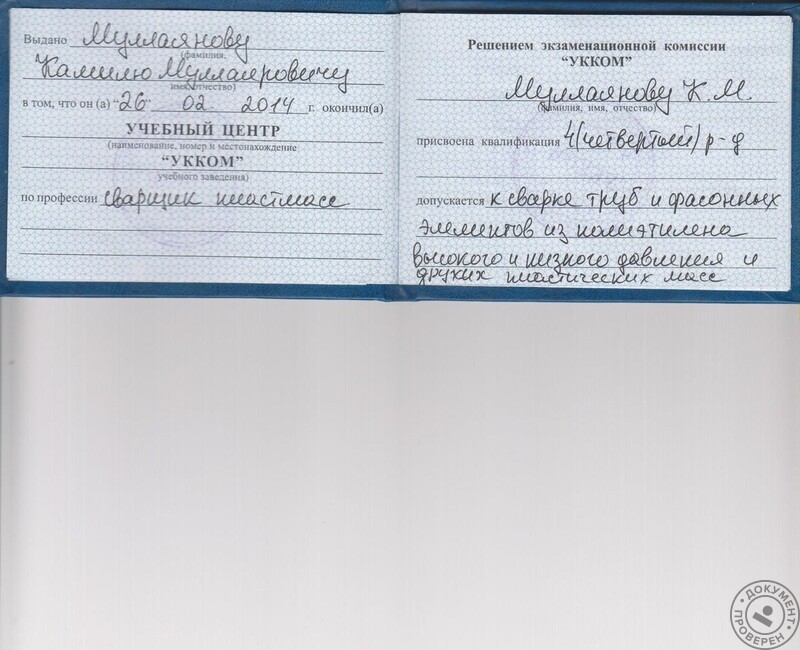 Выдано Муллаянову
(фамилия,
Камилю Муллаяровичу
имя, отчество)
в том, что он (а) "26" 02 2014 г. окончил(а)
УЧЕБНЫЙ ЦЕНТР
(наименование, номер и местонахождение
“УККОМ”
учебного заведения)
по профессии сварщик пластмасс
Решением экзаменационной комиссии
“УККОМ”
Муллаянову К.М.
(фамилия, имя, отчество)
присвоена квалификация 4(четвертый) р-д
допускается к сварке труб и фасонных
элементов из полиэтилена
высокого и низкого давления и
других пластических масс
ДОКУМЕНТ
ПРОВЕРЕН